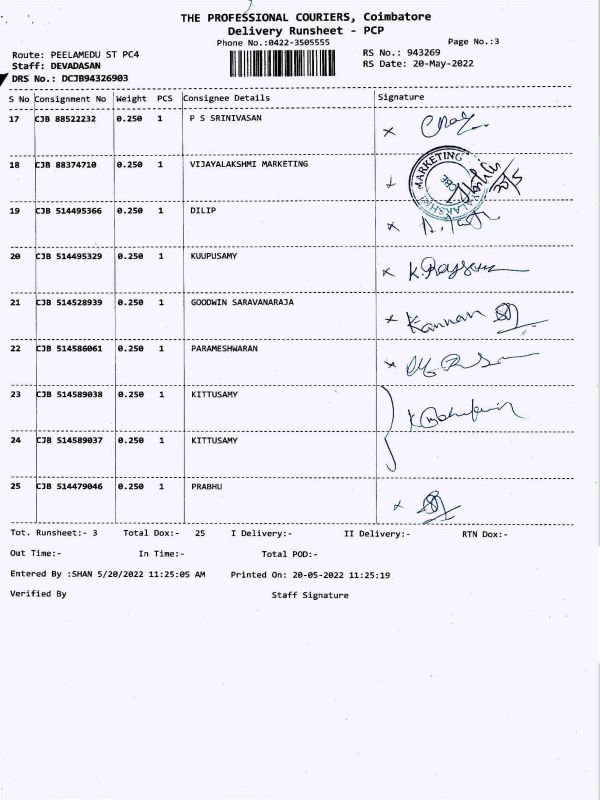 THE PROFESSIONAL COURIERS, Coimbatore
Delivery Runsheet - PCP
Phone No.:0422-3505555
Page No.:3
Route: PEELAMEDU ST PC4
RS No.: 943269
Staff: DEVADASAN
RS Date: 20-May-2022
DRS No.: DCJB94326903
S No Consignment No Weight PCS Consignee Details Signature
17 CJB 88522232 0.250 1 P S SRINIVASAN
18 CJB 88374710 0.250 1 VIJAYALAKSHMI MARKETING
MARKETING
CBE
19 CJB 514495366 0.250 1 DILIP
20 CJB 514495329 0.250 1 KUUPUSAMY
21 CJB 514528939 0.250 1 GOODWIN SARAVANARAJA
Kannan
22 CJB 514586061 0.250 1 PARAMESHWARAN
23 CJB 514589038 0.250 1 KITTUSAMY
24 CJB 514589037 0.250 1 KITTUSAMY
25 CJB 514479046 0.250 1 PRABHU
Tot. Runsheet:- 3 Total Dox:- 25 I Delivery:- II Delivery:- RTN Dox:-
Out Time:- In Time:- Total POD:-
Entered By :SHAN 5/20/2022 11:25:05 AM Printed On: 20-05-2022 11:25:19
Verified By Staff Signature